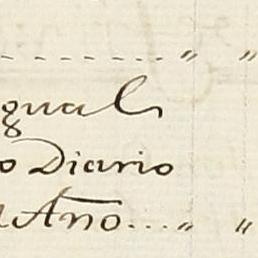 ........ " "
gual
o Diario
l Año...." "